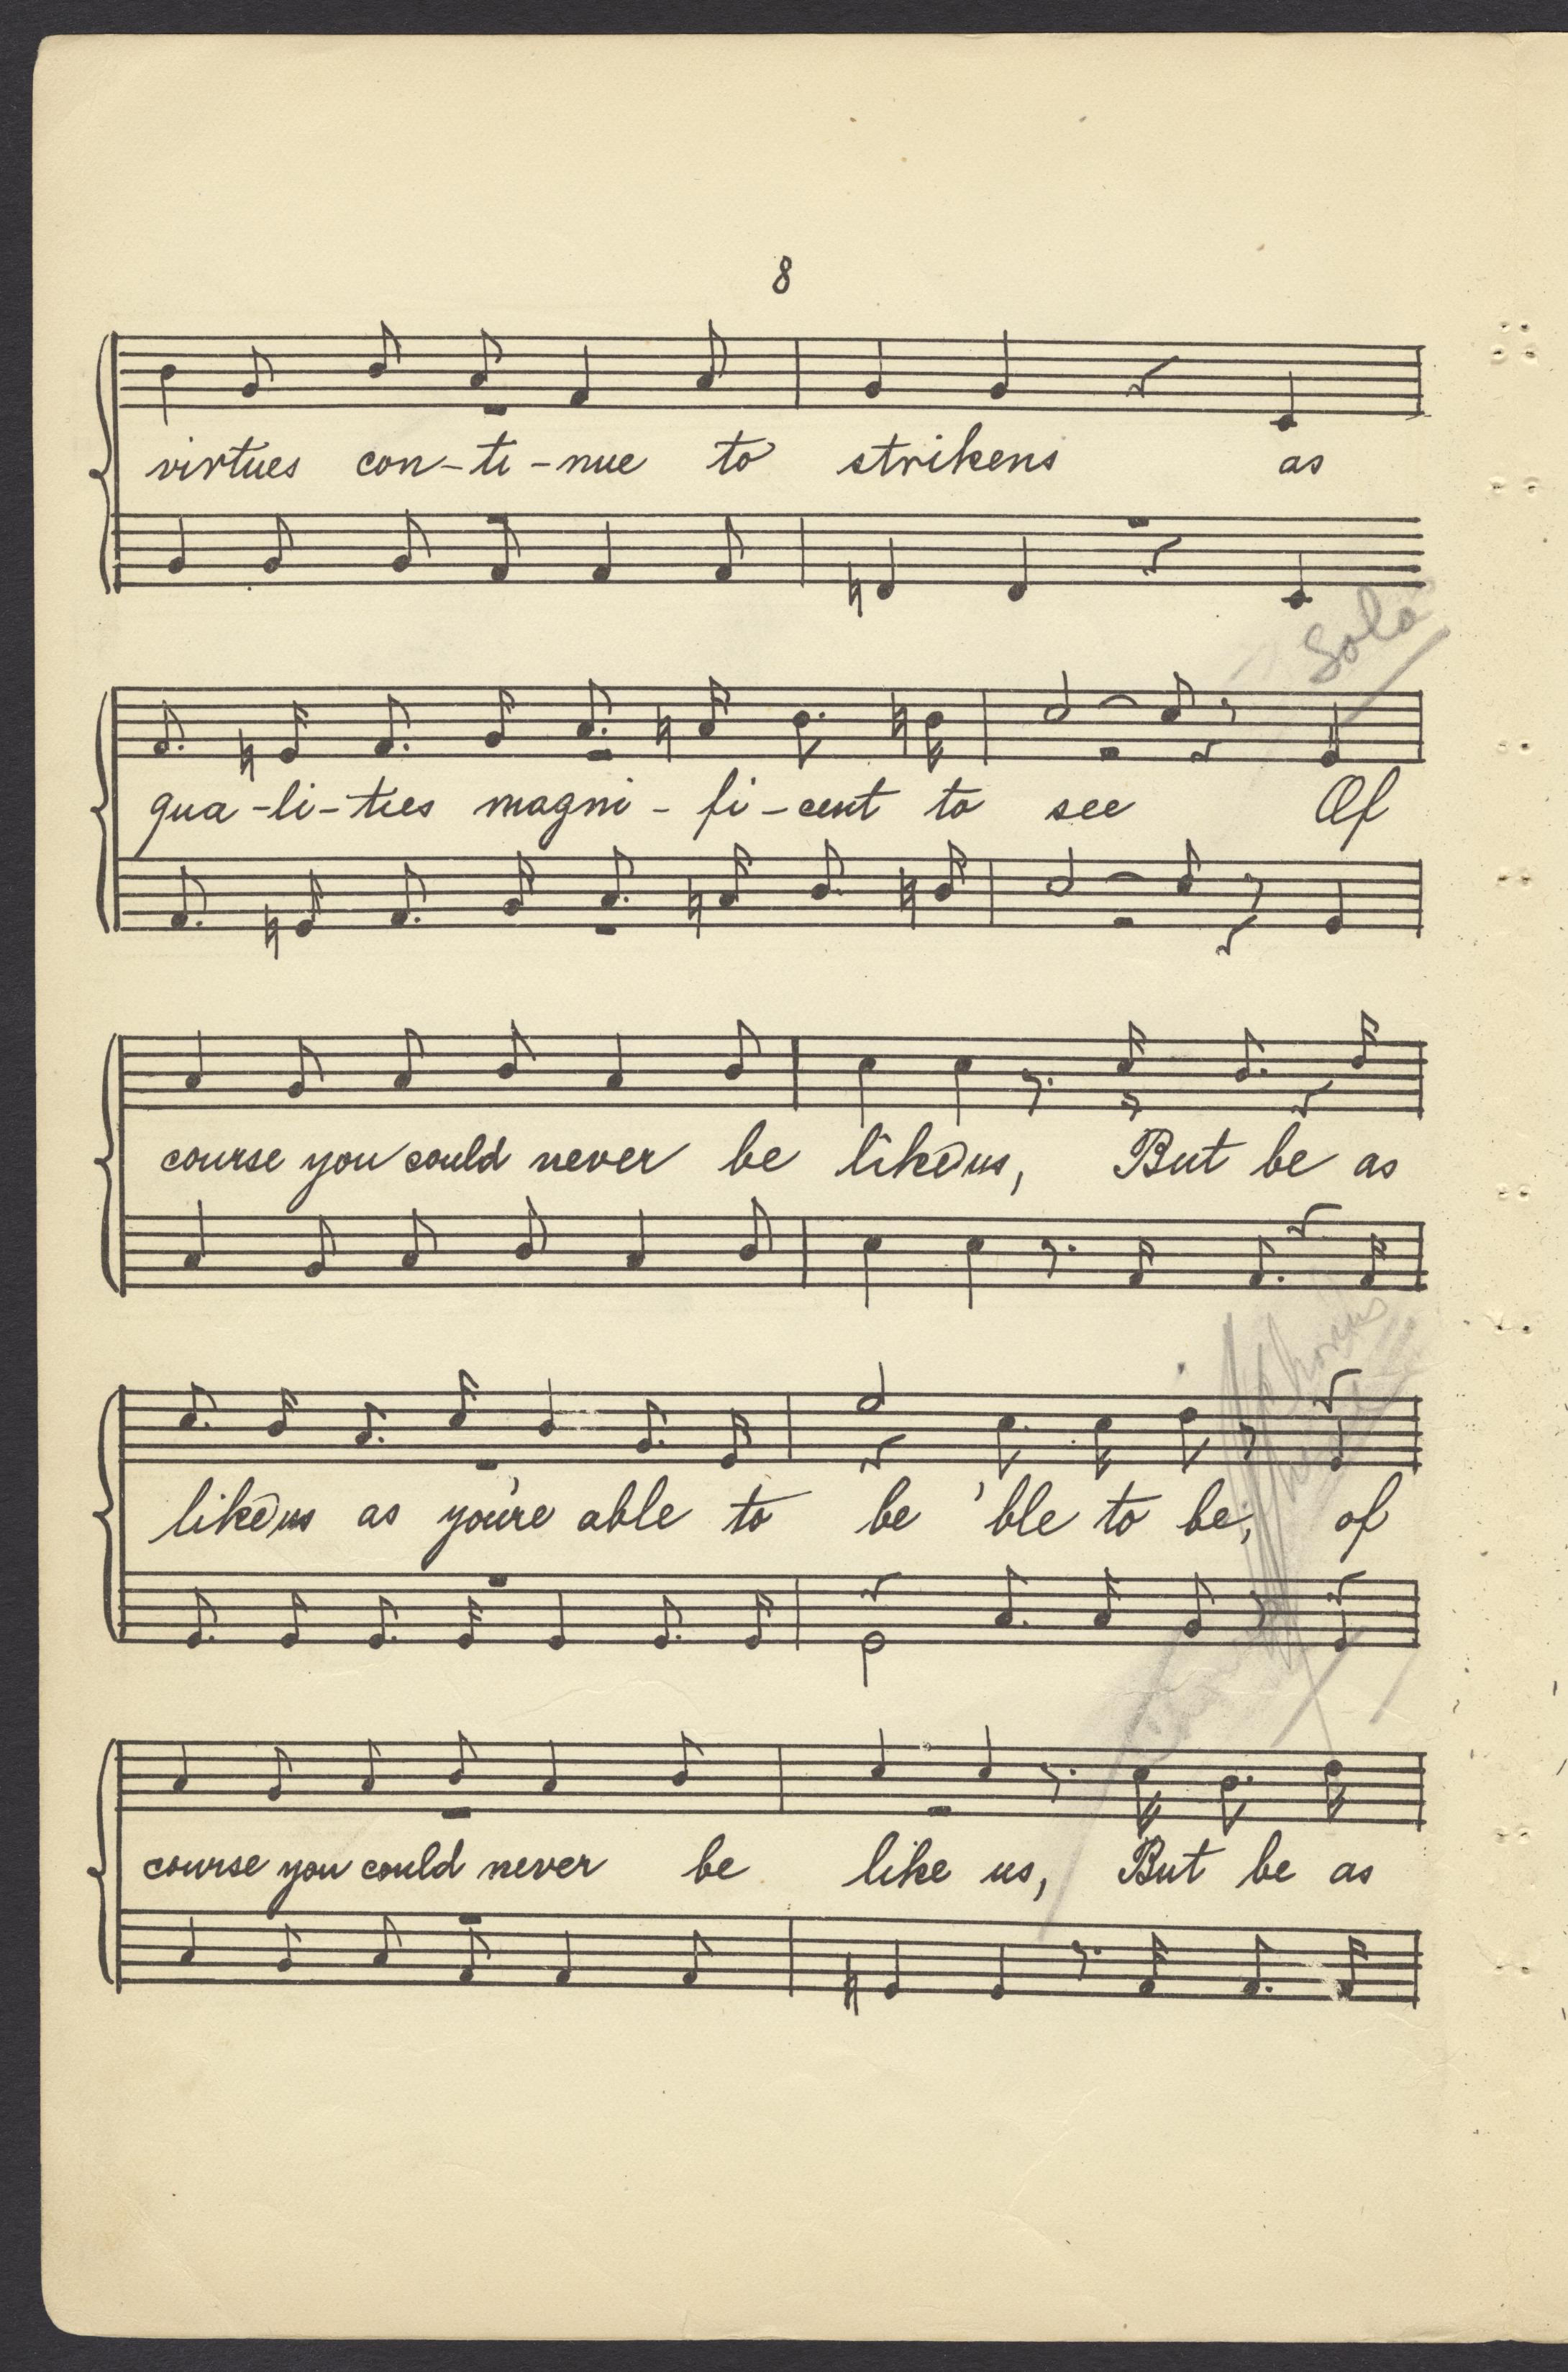 8
virtues con-ti-nue to strikens as
Solo
qua-li-ties magni-fi-cent to see Of
course you could never be like us, But be as
chorus
like us as you're able to be 'ble to be; of
course you could never be like us, But be as